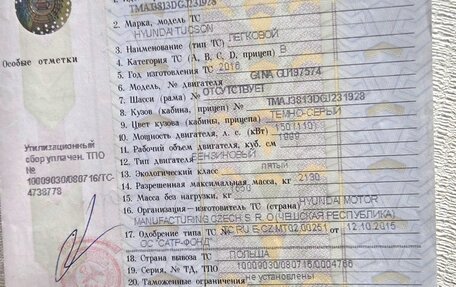 TMAJ3813DGJ231928
2. Марка, модель ТС HYUNDAI TUCSON
3. Наименование (тип ТС) ЛЕГКОВОЙ
4. Категория ТС (А, В, С, D, прицеп) В
5. Год изготовления ТС 2016
6. Модель, № двигателя G4NA
7. Шасси (рама) № ОТСУТСТВУЕТ
8. Кузов (кабина, прицеп) № TMAJ3813DGJ231928
9. Цвет кузова (кабины, прицепа) ТЕМНО-СЕРЫЙ
10. Мощность двигателя, л. с. (кВт) 150 (110)
11. Рабочий объем двигателя, куб. см 1999
12. Тип двигателя БЕНЗИНОВЫЙ
13. Экологический класс пятый
14. Разрешенная максимальная масса, кг 2130
15. Масса без нагрузки, кг
16. Организация—изготовитель ТС (страна) HYUNDAI MOTOR
MANUFACTURING CZECH S. R. O (ЧЕШСКАЯ РЕСПУБЛИКА)
17. Одобрение типа ТС № от 12.10.2015
ОС "САТР-ФОНД"
18. Страна вывоза ТС ПОЛЬША
19. Серия, № ТД, ТПО 10009030/080716/0004766
20. Таможенные ограничения не установлены
Особые отметки
Утилизационный
сбор уплачен. ТПО
№
10009030/080716/ТС-
4738778